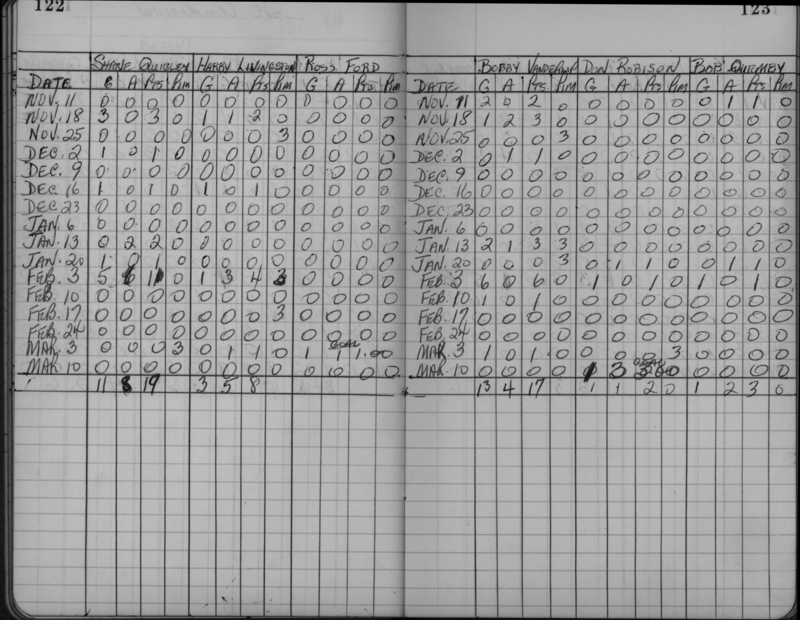 122
SHANE QUIGLEY HARRY LIVINGSTON ROSS FORD
DATE G A Pts Pim G A Pts Pim G A Pts Pim
NOV. 11 0 0 0 0 0 0 0 0 0 0 0 0
NOV. 18 3 0 3 0 1 1 2 0 0 0 0 0
NOV. 25 0 0 0 0 0 0 0 3 0 0 0 0
DEC. 2 1 0 1 0 0 0 0 0 0 0 0 0
DEC. 9 0 0 0 0 0 0 0 0 0 0 0 0
DEC 16 1 0 1 0 1 0 1 0 0 0 0 0
DEC 23 0 0 0 0 0 0 0 0 0 0 0 0
JAN. 6 0 0 0 0 0 0 0 0 0 0 0 0
JAN. 13 0 2 2 0 0 0 0 0 0 0 0
JAN. 20 1 0 1 0 0 0 0 0 0 0 0 0
FEB. 3 5 6 11 0 1 3 4 3 0 0 0 0
FEB. 10 0 0 0 0 0 0 0 0 0 0 0 0
FEB. 17 0 0 0 0 0 0 0 3 0 0 0 0
FEB. 24 0 0 0 0 0 0 0 0 0 0 0 0
MAR. 3 0 0 0 3 0 1 1 0 1 1 1.00
GOAL
MAR. 10 0 0 0 0 0 0 0 0 0 0 0 0
11 8 19 3 5 8
123
BOBBY VANDERLIP DON ROBISON BOB QUIEMBY
DATE G A Pts Pim G A Pts Pim G A Pts Pim
NOV. 11 2 0 2 0 0 0 0 0 0 1 1 0
NOV. 18 1 2 3 0 0 0 0 0 0 0 0 0
NOV. 25 0 0 0 3 0 0 0 0 0 0 0 0
DEC. 2 0 1 1 0 0 0 0 0 0 0 0 0
DEC. 9 0 0 0 0 0 0 0 0 0 0 0 0
DEC. 16 0 0 0 0 0 0 0 0 0 0 0 0
DEC. 23 0 0 0 0 0 0 0 0 0 0 0 0
JAN. 6 0 0 0 0 0 0 0 0 0 0 0 0
JAN. 13 2 1 3 3 0 0 0 0 0 0 0 0
JAN. 20 0 0 0 3 0 1 1 0 0 1 1 0
FEB. 3 6 0 6 0 1 0 1 0 1 0 1 0
FEB. 10 1 0 1 0 0 0 0 0 0 0 0 0
FEB. 17 0 0 0 0 0 0 0 0 0 0 0 0
FEB. 24 0 0 0 0 0 0 0 0 0 0 0 0
MAR. 3 1 0 1 0 0 0 0 3 0 0 0 0
GOAL
MAR. 10 0 0 0 0 1 3 0 0 0 0
13 4 17 1 1 2 0 1 2 3 0